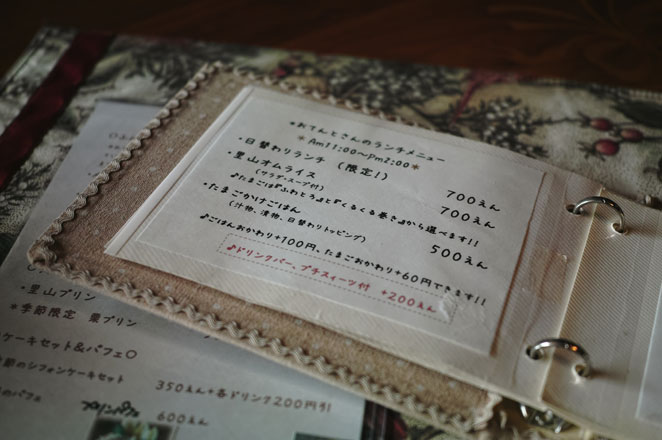 *おてんとさんのランチメニュー
*Am11:00〜Pm2:00*
・日替わりランチ (限定!) 700えん
・里山オムライス 700えん
(サラダ・スープ付)
♪たまごは『ふわとろ』と『くるくる巻き』から選べます!!
・たまごかけごはん 500えん
(汁物、漬物、日替わりトッピング)
♪ごはんおかわり+100円、たまごおかわり+60円できます!!
♪ドリンクバー、プチスィーツ付 +200えん
・里山プリン
*季節限定 栗プリン
ケーキセット&パフェ○
節のシフォンケーキセット 350えん+各ドリンク200円引
のパフェ 600えん
プリンパフェ